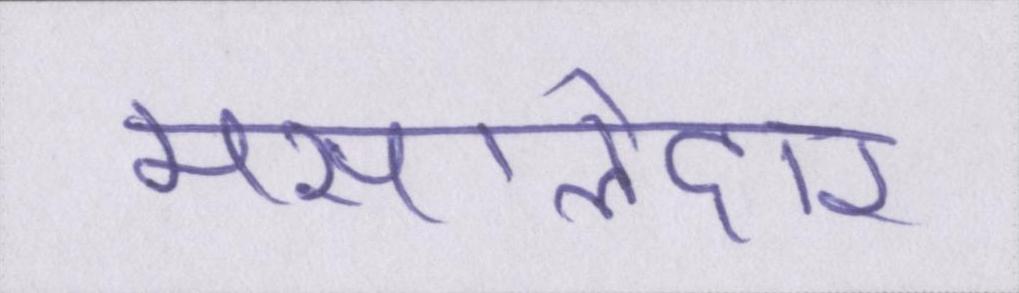 मसालेदार